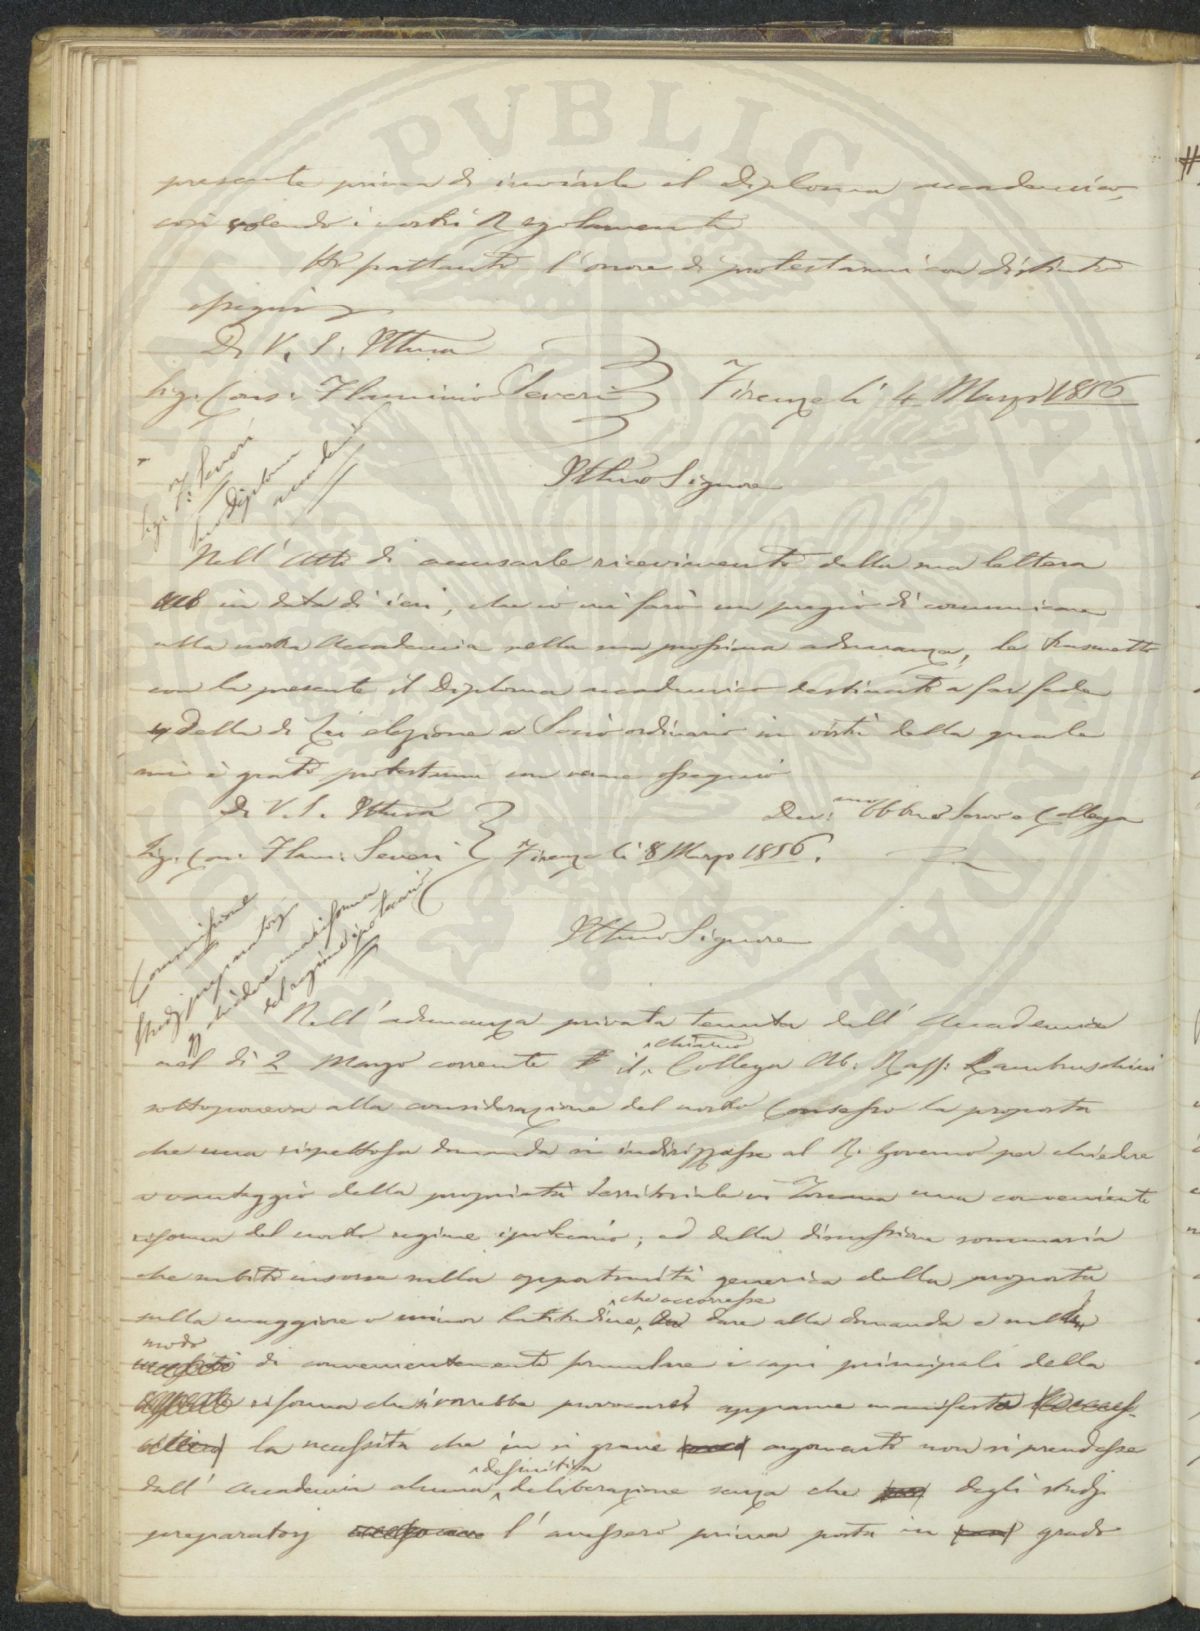 presente prima di inviarle il Diploma accademico,
così volendo i nostri Regolamenti
Ho frattanto l'onore di protestarmi con distinto
ossequio
Di V. S. Illma
Sig. Cons: Flaminio Severi Firenze li 4 Marzo 1856
Sig. F: Severi
Diploma
Illmo Signore
Nell' atto di accusarle ricevimento della sua lettera
in data di ieri, che io mi farò un pregio di comunicare
alla nostra Accademia nella sua prossima adunanza, le trasmetto
con la presente il Diploma accademico destinato a far fede
della di Lei elezione a Socio ordinario in virtù della quale
mi è grato protestarmi con vero ossequio
Di V. S. Illma Dev: mo Obbmo Servo e Collega
Sig. Con: Flam: Severi Firenze li 8 Marzo 1856.
Commissione
Studj preparatorj
chiedere una riforma
del regime ipotecario
Illmo Signore
Nell' adunanza privata tenuta dall' Accademia
nel dì 2 Marzo corrente il chiarmo Collega Ab: Raff: Lambruschini
sottoponeva alla considerazione del nostro Consesso la proposta
che una rispettosa domanda si indirizzasse al R. Governo per chiedere
a vantaggio della proprietà territoriale in Toscana una conveniente
riforma del nostro regime ipotecario; ed dalla discussione sommaria
che subito insorse sulla opportunità generica della proposta
sulla maggiore o minor latitudine che occorresse dare alla domanda e sul
modo di convenientemente formulare i capi principali della
riforma che si vorrebbe provocare apparve manifesta
la necessità che in sì grave argomento non si prendesse
dall' Accademia alcuna definitiva deliberazione senza che degli studj
preparatorj l'avessero prima posta in grado